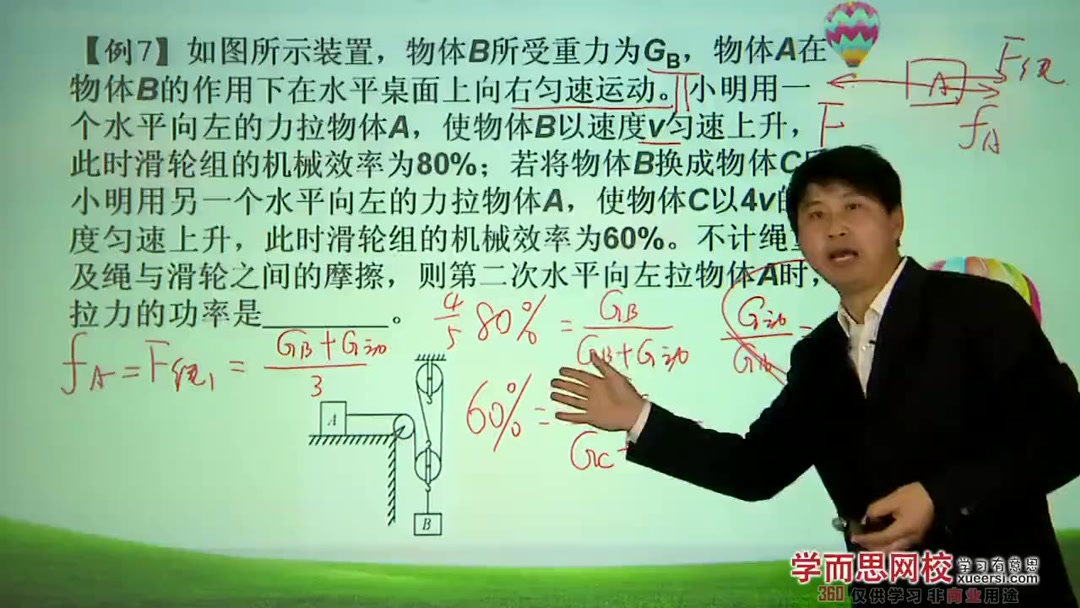 【例7】如图所示装置，物体B所受重力为G_B，物体A在
物体B的作用下在水平桌面上向右匀速运动。小明用一
个水平向左的力拉物体A，使物体B以速度v匀速上升，
此时滑轮组的机械效率为80%；若将物体B换成物体C
小明用另一个水平向左的力拉物体A，使物体C以4v的
度匀速上升，此时滑轮组的机械效率为60%。不计绳
及绳与滑轮之间的摩擦，则第二次水平向左拉物体A时，
拉力的功率是________。
F绳
A
F
f_A
4/5 80% = G_B/(G_B+G动)
G动/G_B =
f_A = F绳1 = (G_B+G动)/3
60% =
G_C +
A
B
学而思网校 学习有意思
xueersi.com
360 仅供学习 非商业用途